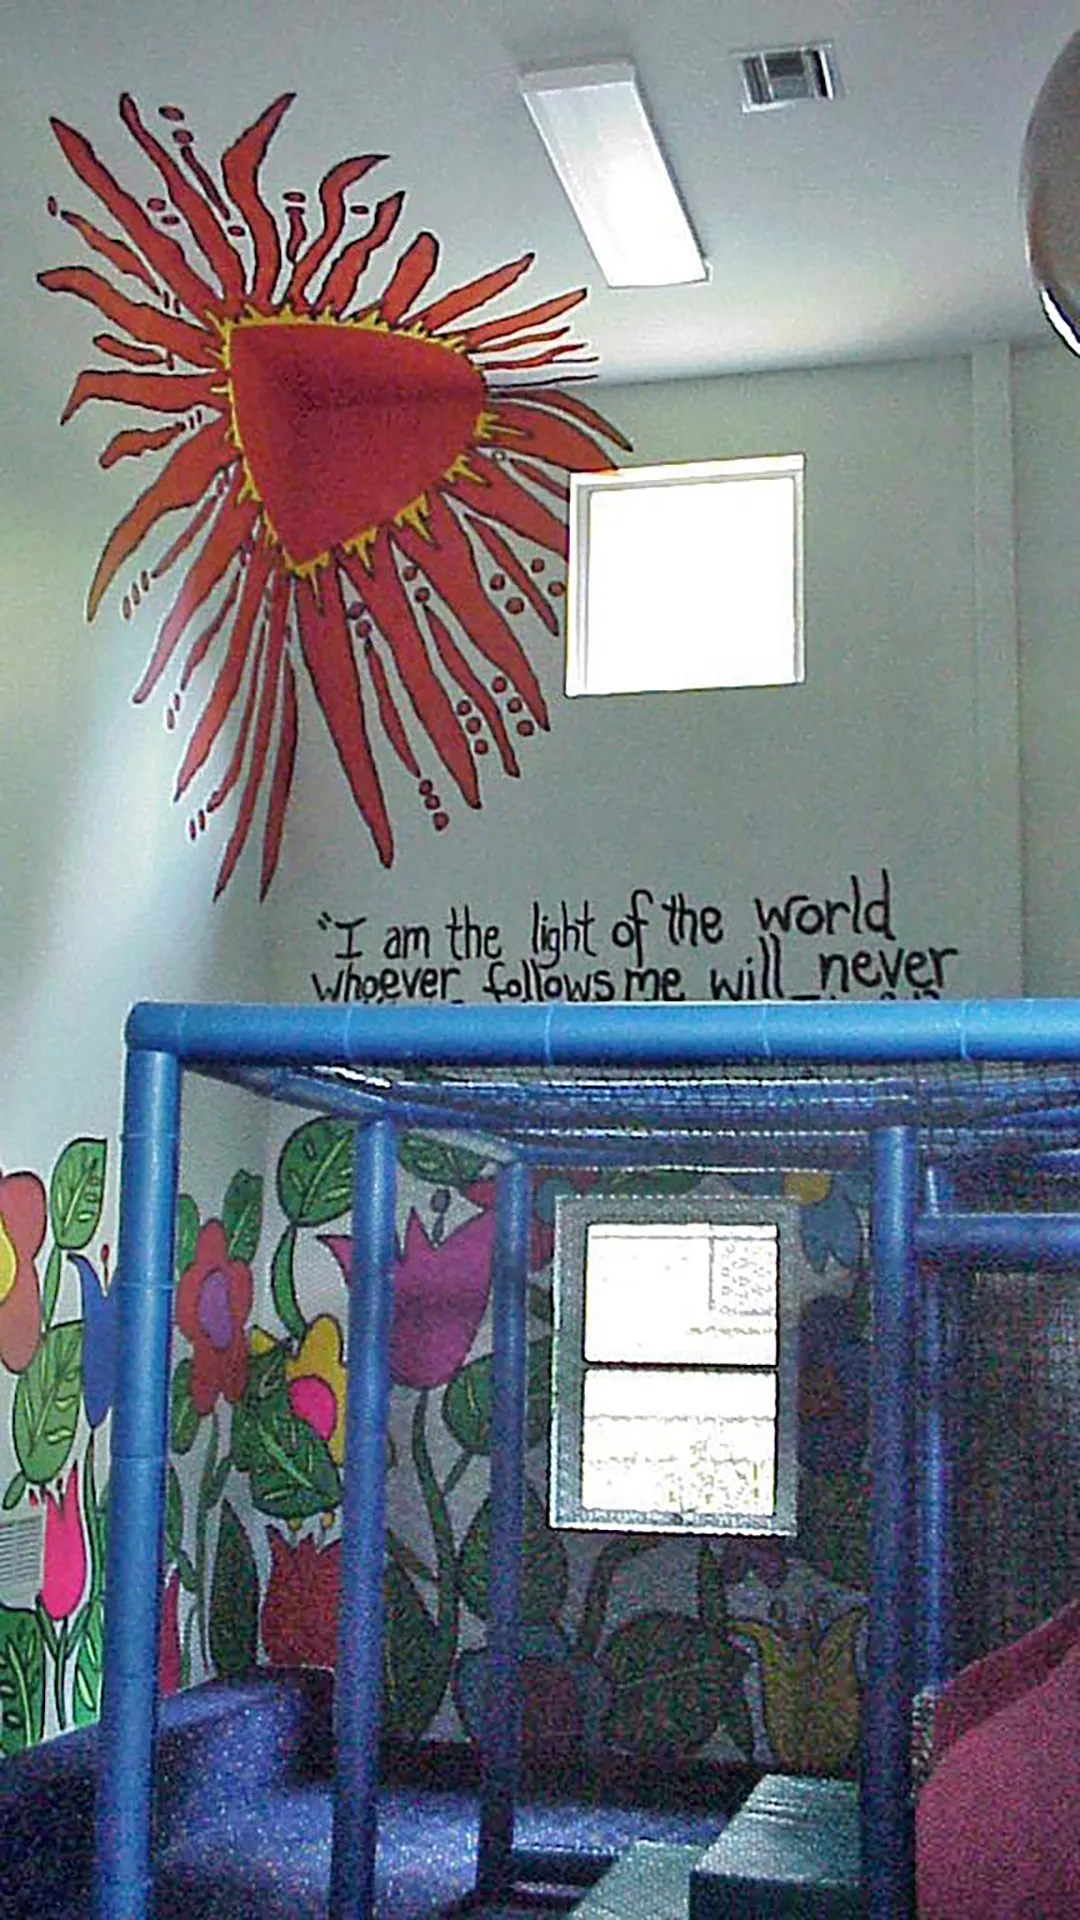 "I am the light of the world
whoever follows me will never